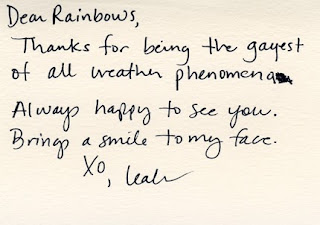 Dear Rainbows,
Thanks for being the gayest
of all weather phenomena
Always happy to see you.
Brings a smile to my face.
XO,
Leah